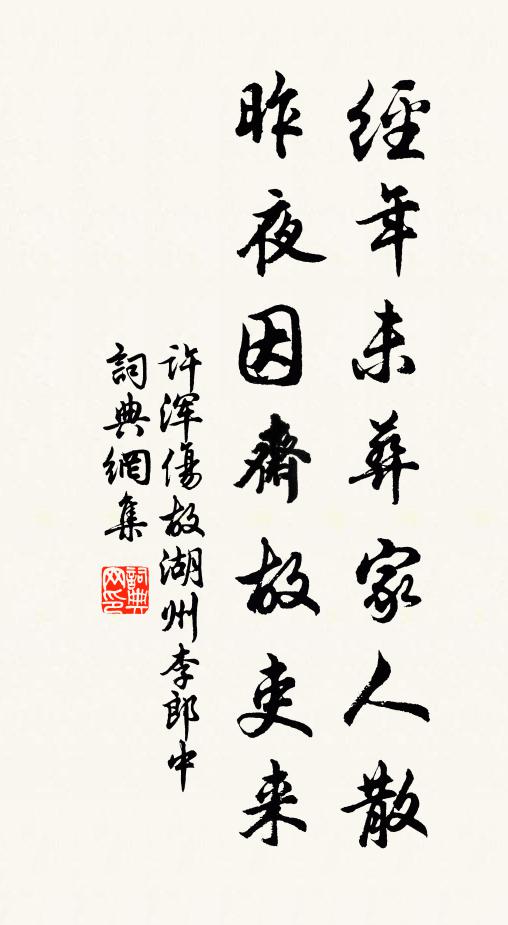 經年未葬家人散
昨夜因齋故吏来
許渾傷故湖州李郎中
詞典網集
詞典
网印